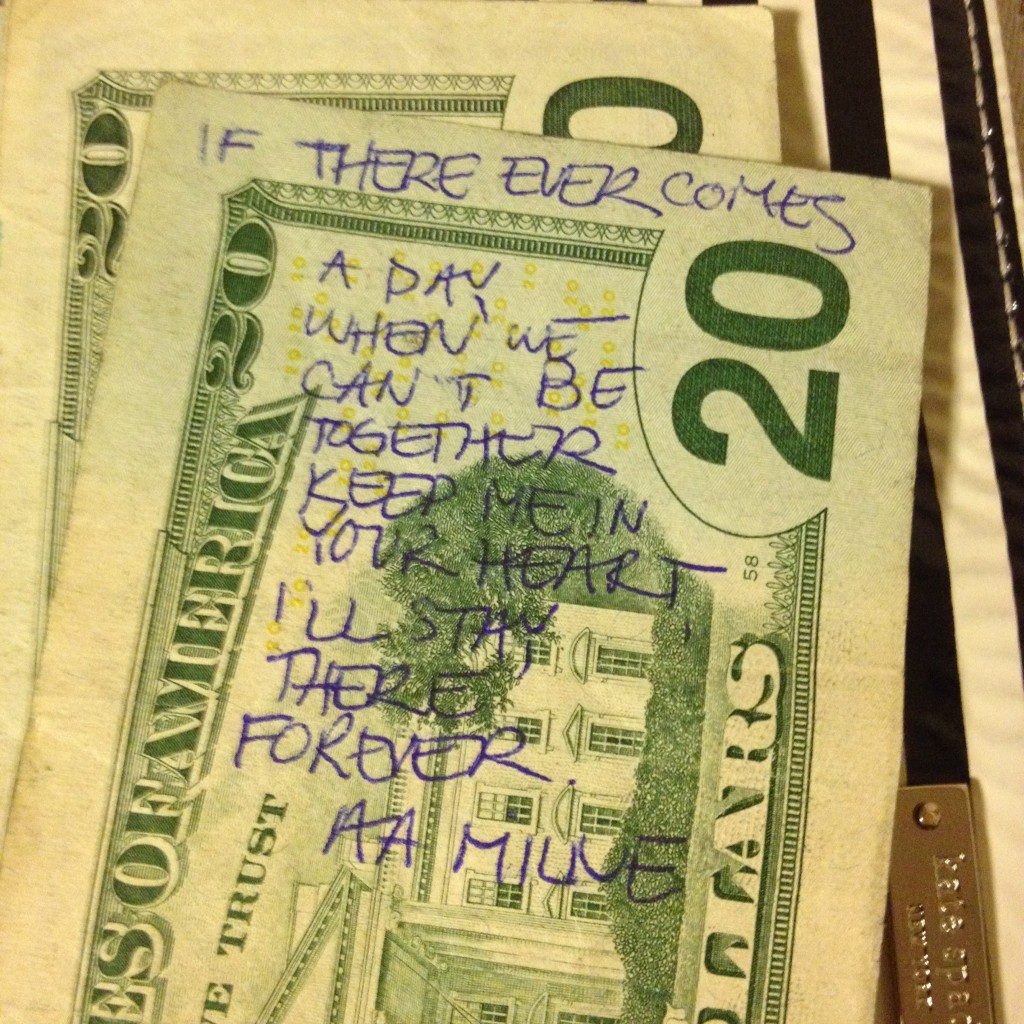 IF THERE EVER COMES
A DAY
WHEN WE
CAN'T BE
TOGETHER
KEEP ME IN
YOUR HEART
I'LL STAY
THERE
FOREVER.
AA MILNE
20
20
20
58
ES OF AMERICA
VE TRUST
DOLLARS
kate spade
NEW YORK